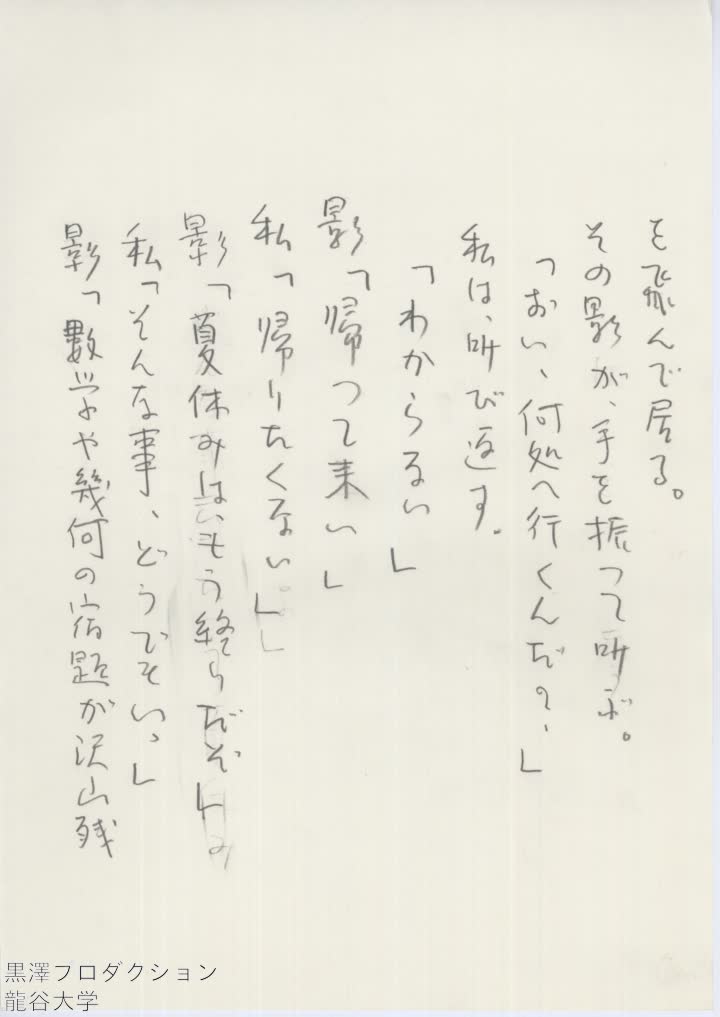 を飛んで居る。
その影が、手を振って叫ぶ。
「おい、何処へ行くんだ？、」
私は、叫び返す。
「わからない」
影「帰って来い」
私「帰りたくない」
影「夏休みは、もう終りだぞ」
私「そんな事、どうでもいゝ」
影「数学や幾何の宿題が沢山残
黒澤フロダクション
龍谷大学